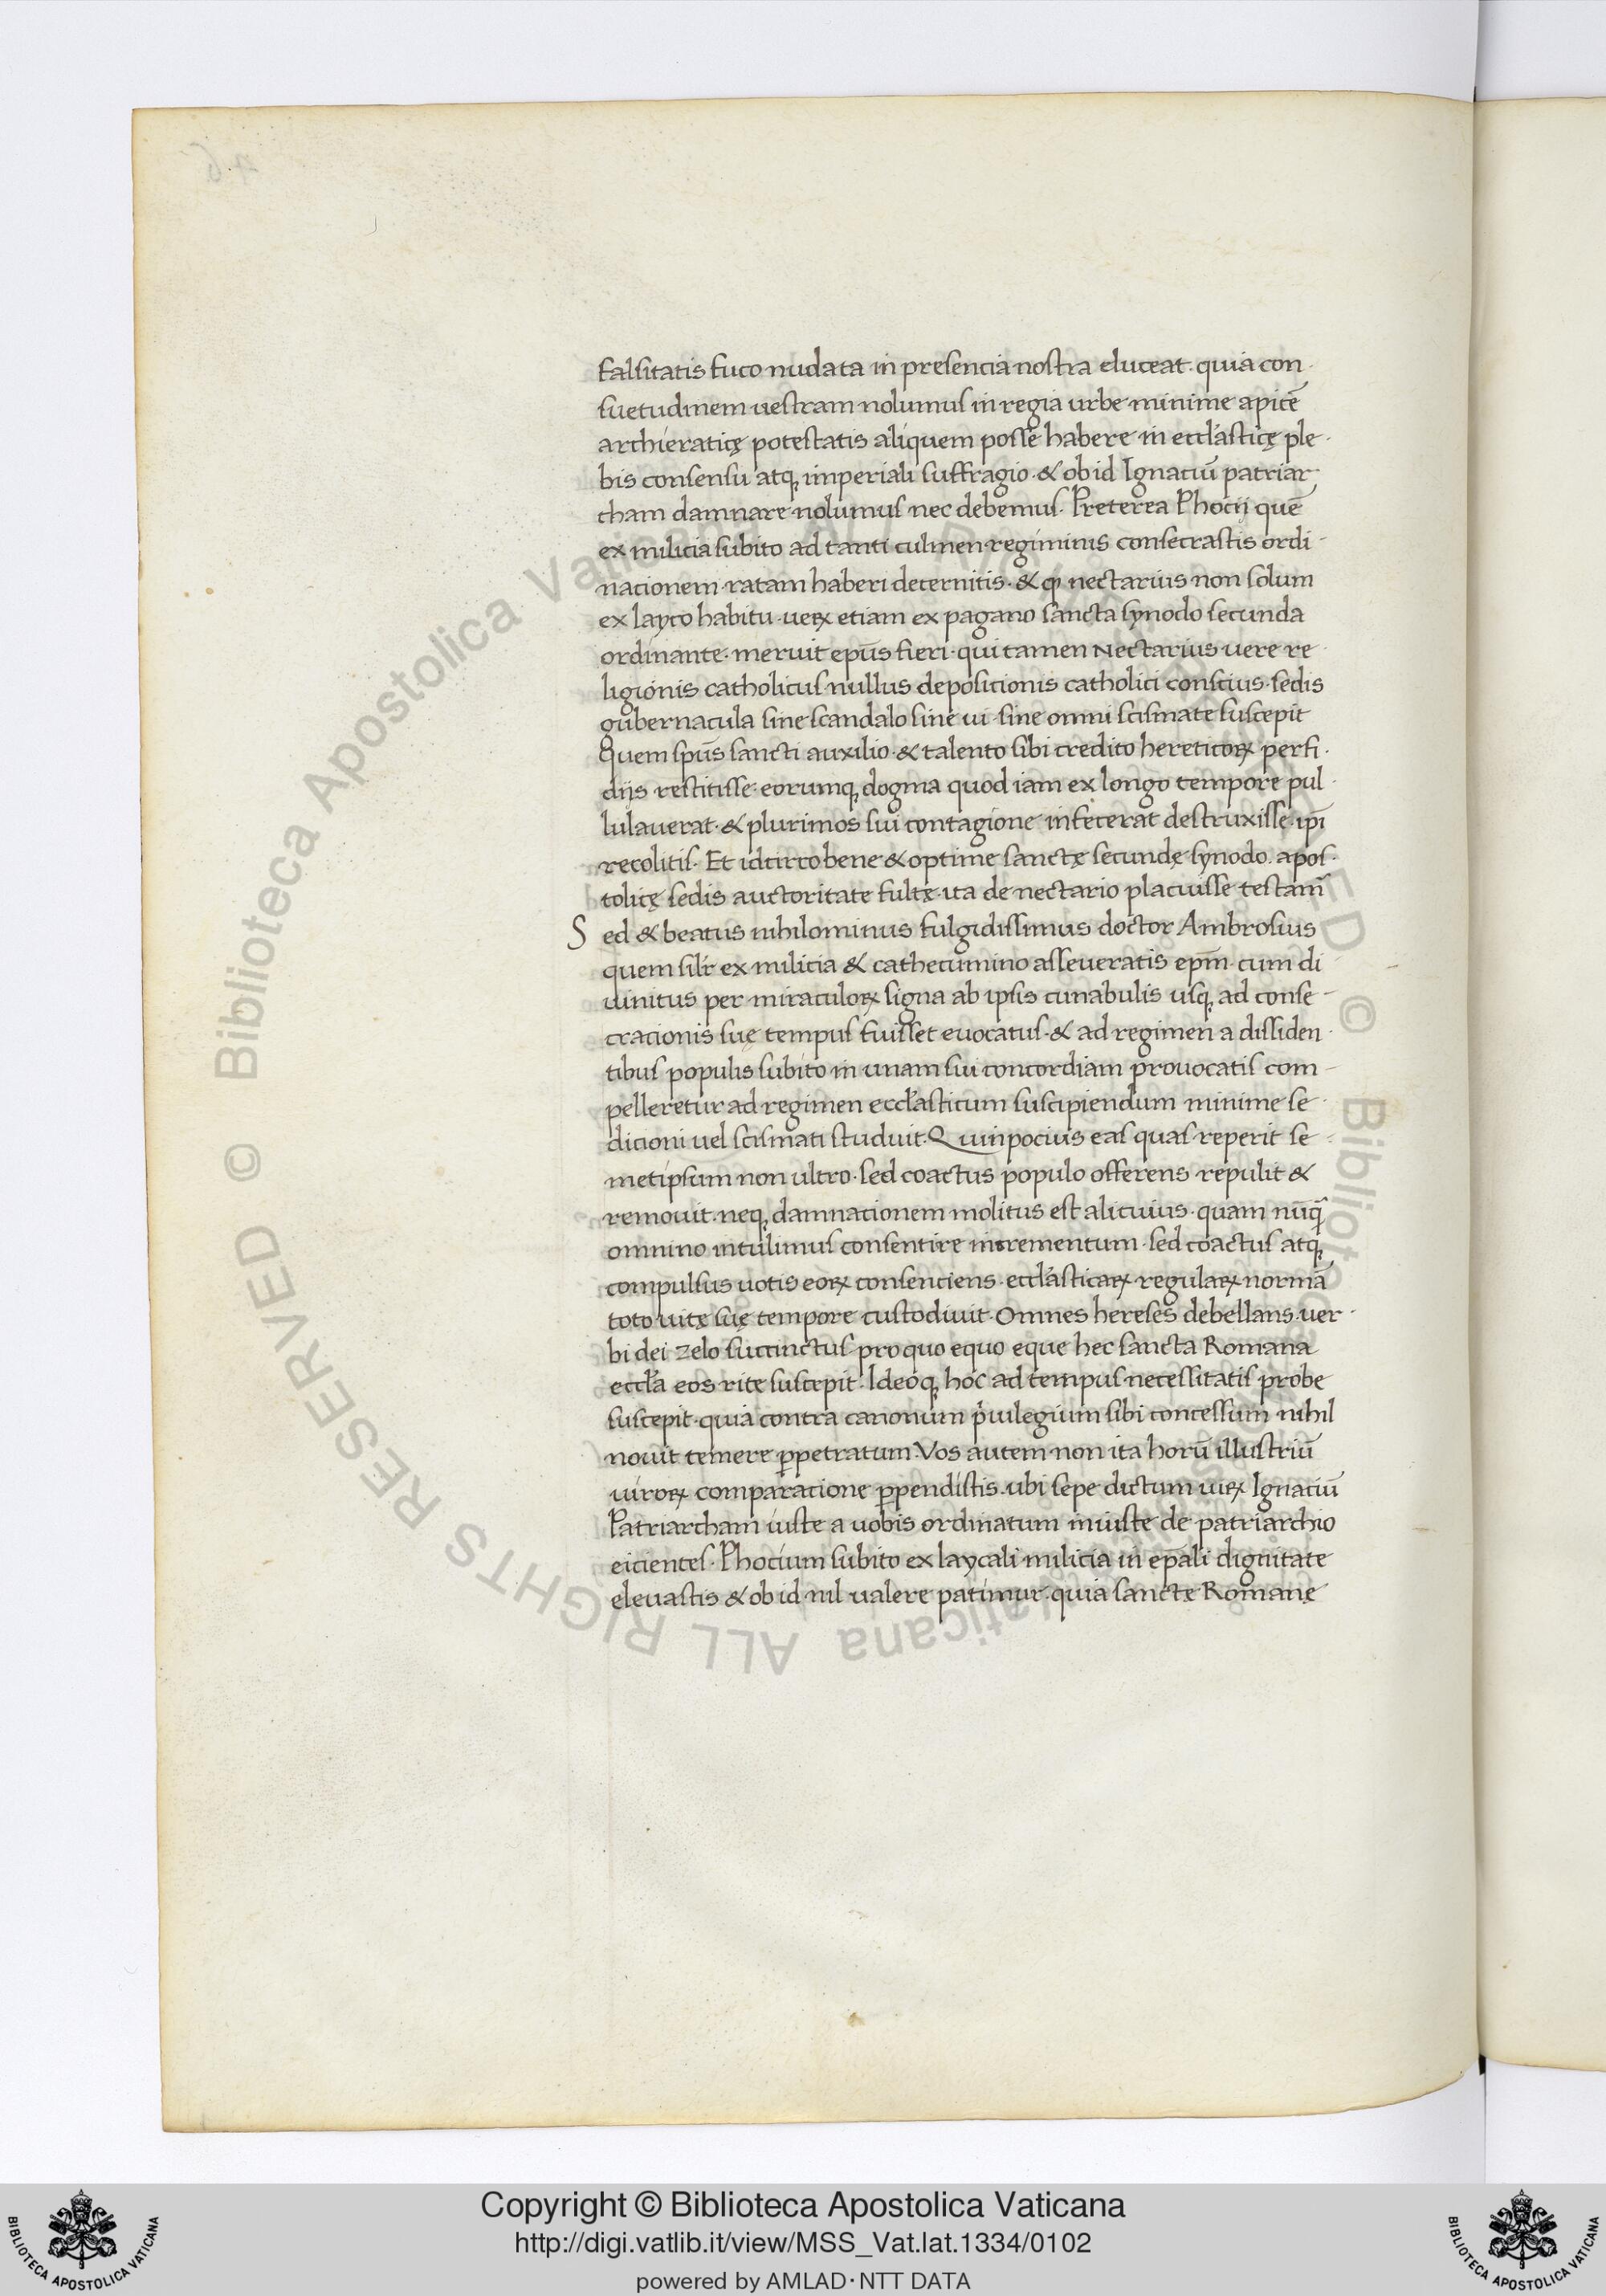 falsitatis fuco nudata in presencia nostra eluceat · quia con-
suetudinem uestram nolumus in regia urbe minime apicē
archieraticę potestatis aliquem posse habere in eccl'asticę ple-
bis consensu atq; imperiali suffragio · & ob id Ignatiū patriar
cham damnare nolumus nec debemus · Preterea Phocij quē
ex milicia subito ad tanti culmen regiminis consecrastis ordi-
nacionem ratam haberi decernitis · & qꝫ nectarius non solum
ex layco habitu · ueꝝ etiam ex pagano sancta synodo secunda
ordinante · meruit ep̄us fieri · qui tamen Nectarius uere re
ligionis catholicus nullus deposicionis catholici conscius · sedis
gubernacula sine scandalo sine ui · sine omni scismate suscepit
Quem sp̄us sancti auxilio · & talento sibi credito hereticoꝝ perfi-
diis restitisse · eorumq; dogma quod iam ex longo tempore pul-
lulauerat · & plurimos sui contagione infecerat destruxisse · ip̄i
recolitis · Et idcirco bene & optime sanctę secundę synodo · apos-
tolicę sedis auctoritate fultę · ita de nectario placuisse testam̄
Sed & beatus nihilominus fulgidissimus doctor Ambrosius
quem sil'r ex milicia & cathecumino asseueratis ep̄m · cum di
uinitus per miraculoꝝ signa ab ipsis cunabulis usq; ad conse-
cracionis suę tempus fuisset euocatus · & ad regimen a dissiden-
tibus populis subito in unam sui concordiam prouocatis com-
pelleretur ad regimen eccl'asticum suscipiendum minime se-
dicioni uel scismati studuit · Quin pocius eas quas reperit se-
metipsum non ultro · sed coactus populo offerens repulit &
remouit · neq; damnacionem molitus est alicuius · quam nūq̄
omnino intulimus consentire incrementum · sed coactus atq;
compulsus uotis eoꝝ consenciens · eccl'asticaꝝ regulaꝝ normā
toto uitę suę tempore custodiuit · Omnes hereses debellans · uer-
bi dei zelo succinctus pro quo equo eque hec sancta Romana
eccl'a eos rite suscepit · Ideoq; hoc ad tempus necessitatis probe
suscepit · quia contra canonum p'uilegium sibi concessum nihil
nouit temere ꝑpetratum · Vos autem non ita horū illustriū
uiroꝝ comparacione ꝑpendistis · ubi sepe dictum uiꝝ Ignaciū
Patriarcham iuste a uobis ordinatum iniuste de patriarchio
eicientes · Phocium subito ex laycali milicia in ep̄ali dignitate
eleuastis & ob id nil ualere patimur · quia sanctę Romanę
Copyright © Biblioteca Apostolica Vaticana
http://digi.vatlib.it/view/MSS_Vat.lat.1334/0102
powered by AMLAD · NTT DATA
BIBLIOTECA APOSTOLICA VATICANA
BIBLIOTECA APOSTOLICA VATICANA
© Biblioteca Apostolica Vaticana ALL RIGHTS RESERVED